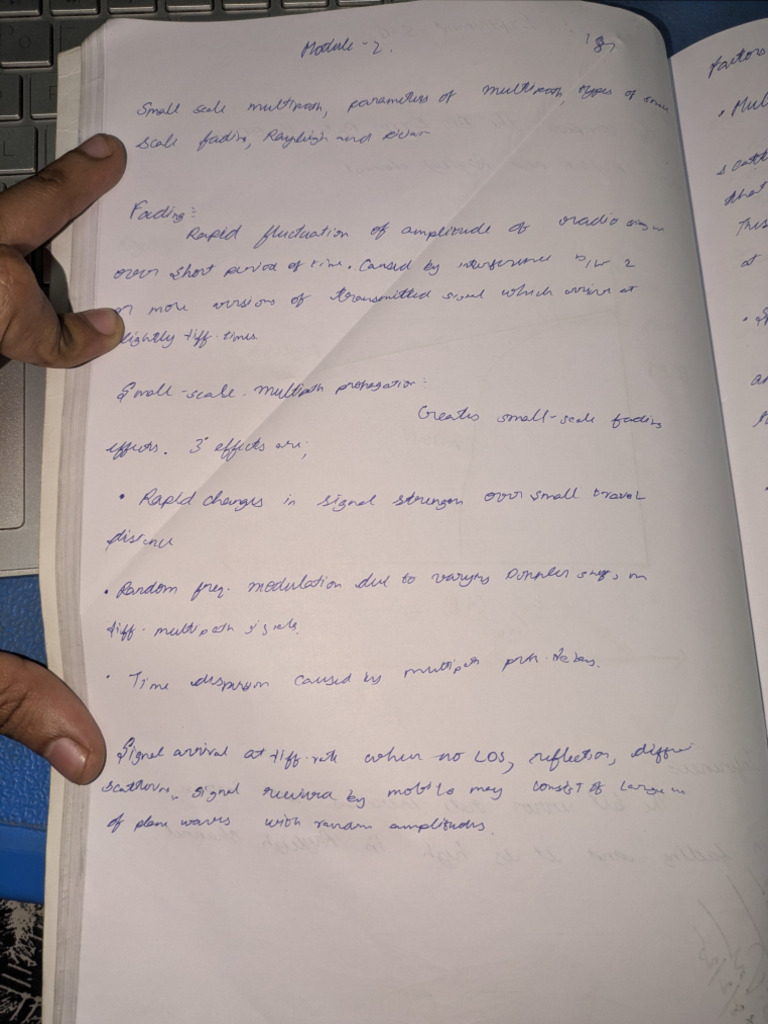 Module-2.
18,
Small scale multipath, parameters of multipath, types of small
scale fading, Rayleigh and Rician
Fading:
Rapid fluctuation of amplitude of radio signal
over short period of time. Caused by interference b/w 2
or more versions of transmitted signal which arrive at
slightly diff. times.
Small-scale multipath propagation:
Creates small-scale fading
effects. 3 effects are;
• Rapid changes in signal strength over small travel
distance
• Random freq. modulation due to varying Doppler shifts on
diff. multipath signals.
• Time dispersion caused by multipath delays.
Signal arrival at diff. rate when no LOS, reflection,
scattering. signal received by mobile may consist of large
of plane waves with random amplitudes.
factors
• Mul
scatt
that
This
at